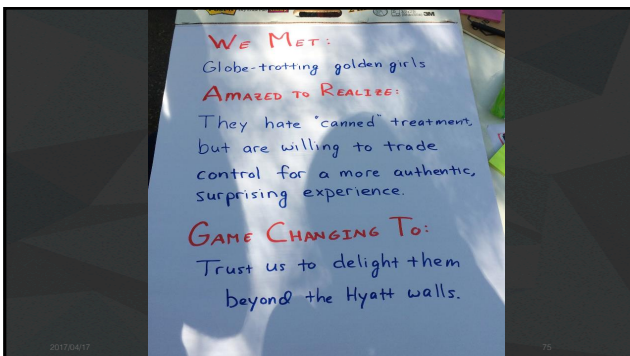 3M
WE MET:
Globe-trotting golden girls
AMAZED TO REALIZE:
They hate "canned" treatment,
but are willing to trade
control for a more authentic,
surprising experience.
GAME CHANGING TO:
Trust us to delight them
beyond the Hyatt walls.
2017/04/17
75